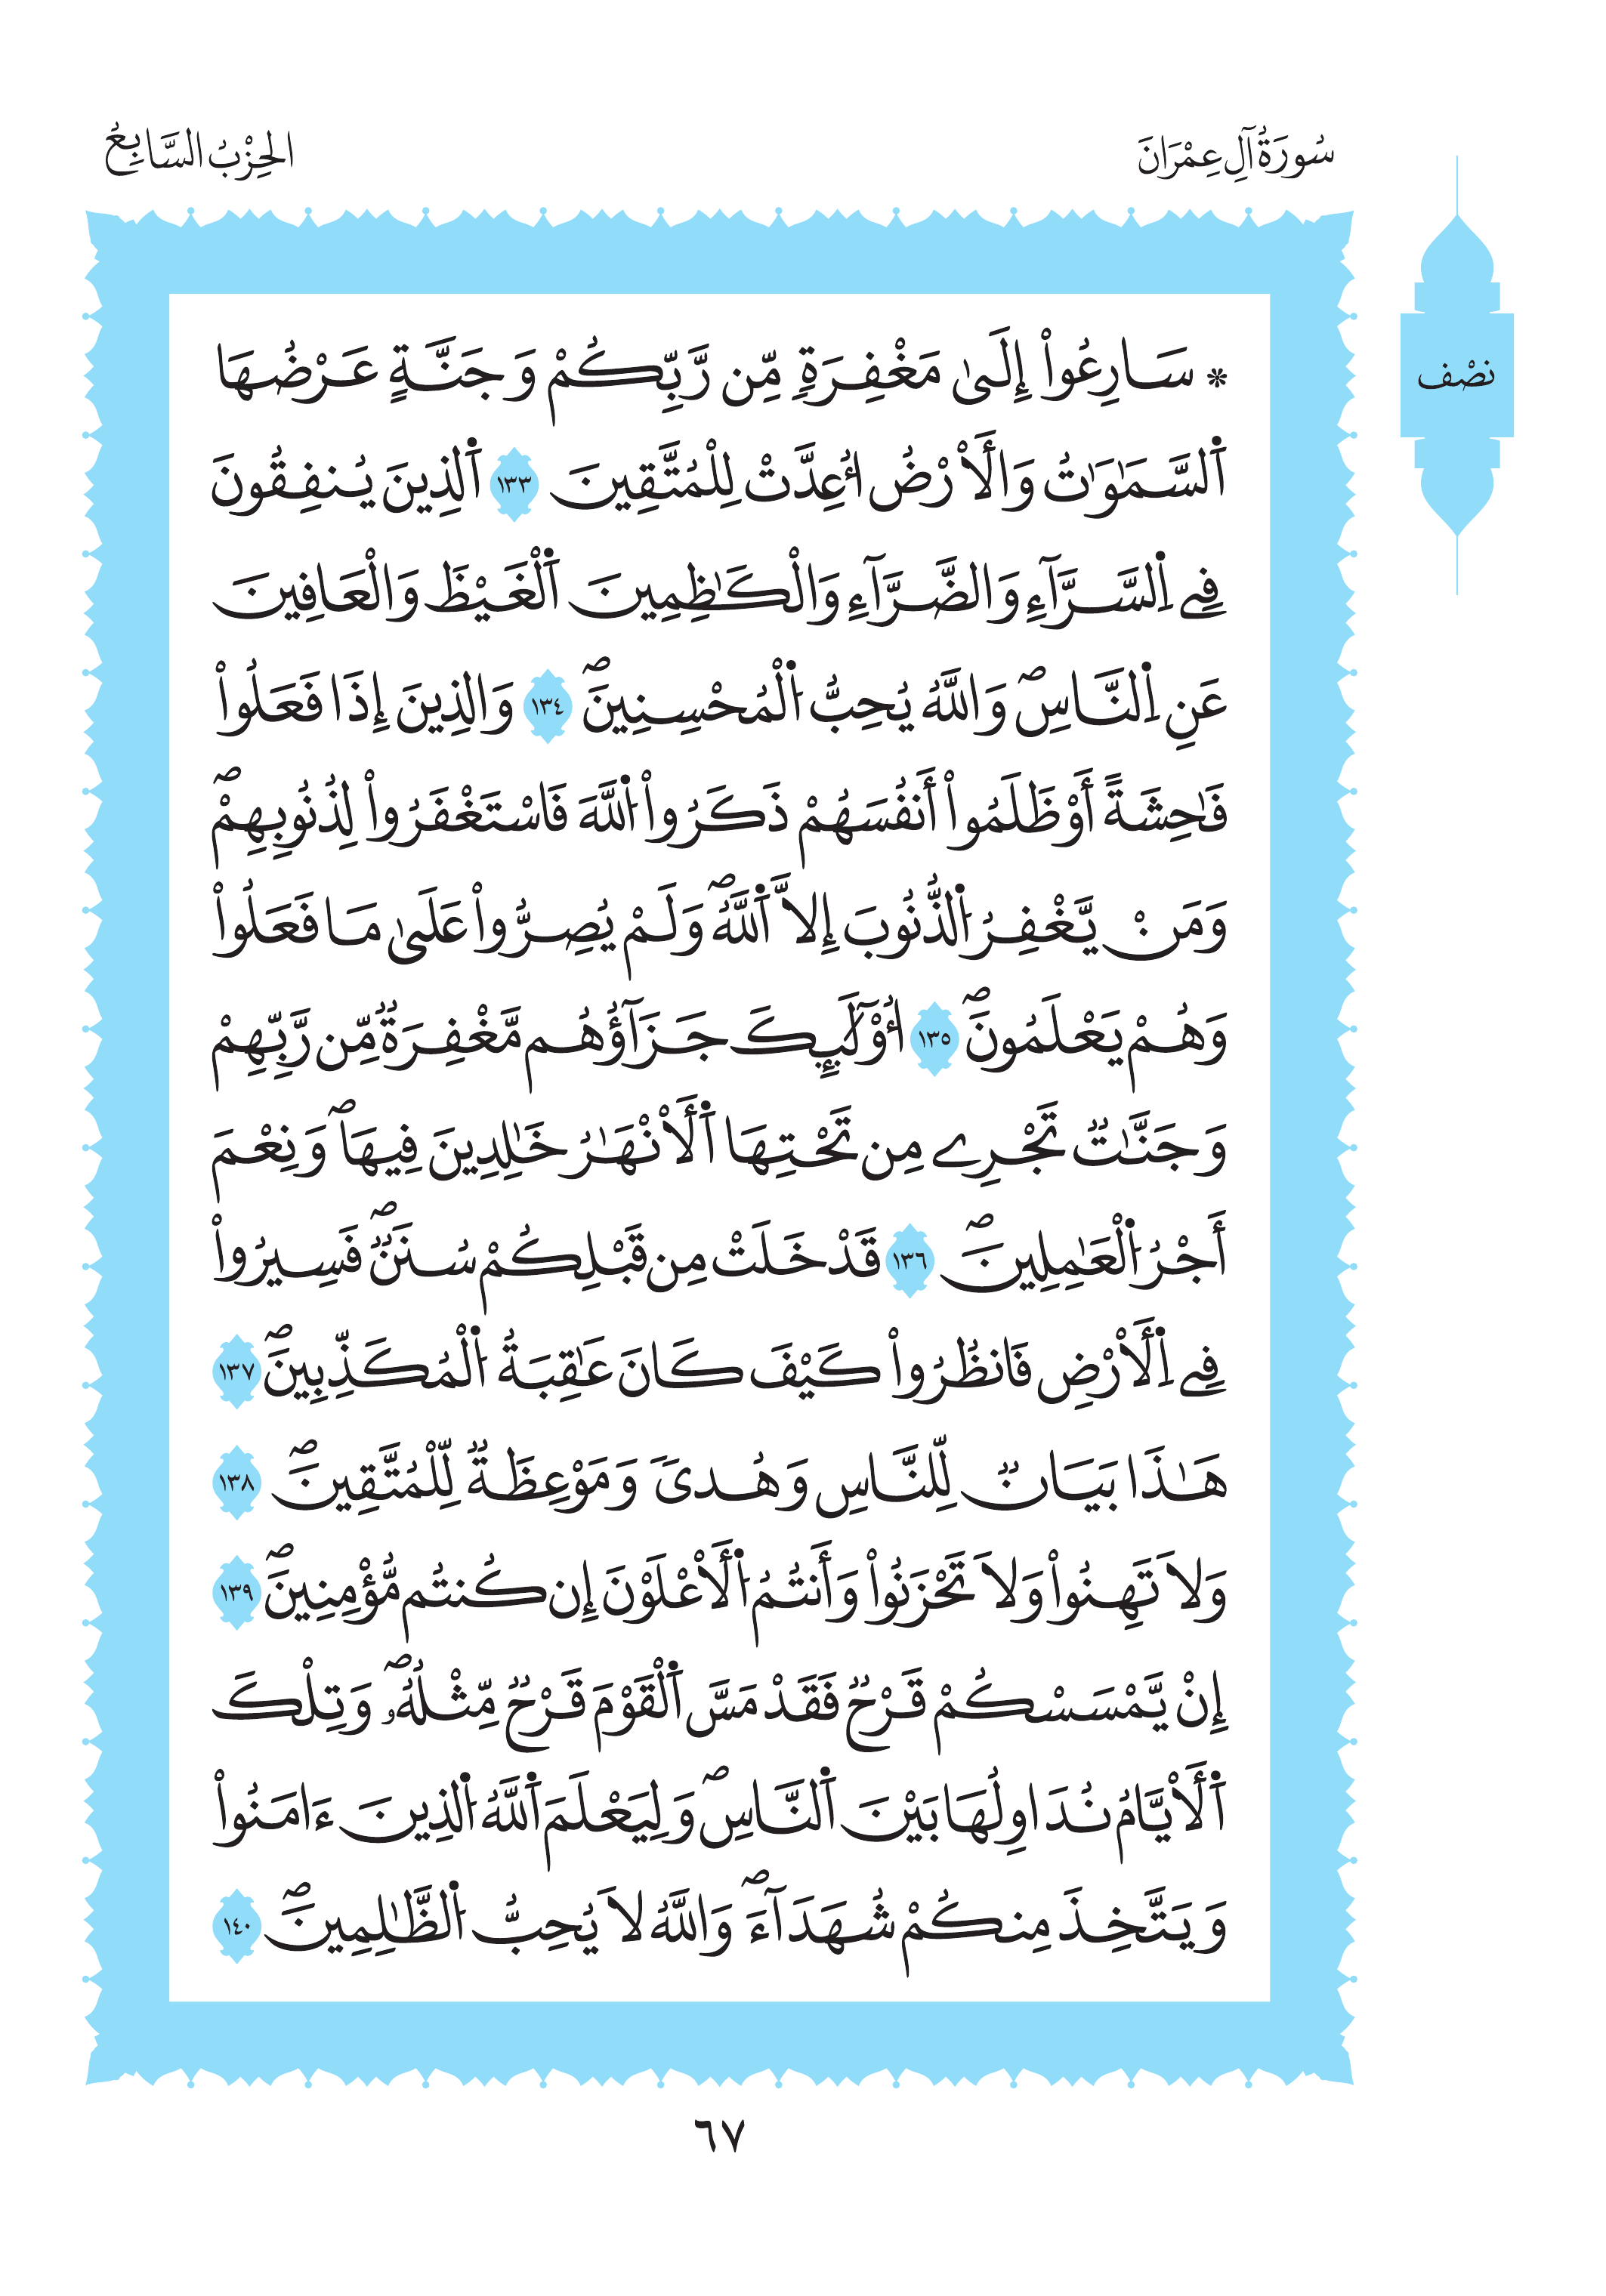 سُورَةُ آلِ عِمْرَانَ
الحِزْبُ السَّابِعُ
نصْف
* سَارِعُواْ إِلَىٰ مَغْفِرَةٍ مِّن رَّبِّكُمْ وَجَنَّةٍ عَرْضُهَا
اَ۬لسَّمَٰوَٰتُ وَالَارْضُ أُعِدَّتْ لِلْمُتَّقِينَ ١٣٣ اَ۬لذِينَ يُنفِقُونَ
فِے اِ۬لسَّرَّآءِ وَالضَّرَّآءِ وَالْكَٰظِمِينَ اَ۬لْغَيْظَ وَالْعَافِينَ
عَنِ اِ۬لنَّاسِۖ وَاللَّهُ يُحِبُّ اُ۬لْمُحْسِنِينَۖ ١٣٤ وَالذِينَ إِذَا فَعَلُواْ
فَٰحِشَةً أَوْ ظَلَمُواْ أَنفُسَهُمْ ذَكَرُواْ اُ۬للَّهَ فَاسْتَغْفَرُواْ لِذُنُوبِهِمْۖ
وَمَنْ يَّغْفِرُ اُ۬لذُّنُوبَ إِلاَّ اَ۬للَّهُۖ وَلَمْ يُصِرُّواْ عَلَىٰ مَا فَعَلُواْ
وَهُمْ يَعْلَمُونَۖ ١٣٥ أُوْلَٰٓئِكَ جَزَآؤُهُم مَّغْفِرَةٌ مِّن رَّبِّهِمْ
وَجَنَّٰتٌ تَجْرِے مِن تَحْتِهَا اَ۬لَانْهَٰرُ خَٰلِدِينَ فِيهَاۖ وَنِعْمَ
أَجْرُ اُ۬لْعَٰمِلِينَۖ ١٣٦ قَدْ خَلَتْ مِن قَبْلِكُمْ سُنَنٌۖ فَسِيرُواْ
فِے اِ۬لَارْضِ فَانظُرُواْ كَيْفَ كَانَ عَٰقِبَةُ اُ۬لْمُكَذِّبِينَۖ ١٣٧
هَٰذَا بَيَانٌ لِّلنَّاسِ وَهُدىً وَمَوْعِظَةٌ لِّلْمُتَّقِينَۖ ١٣٨
وَلاَ تَهِنُواْ وَلاَ تَحْزَنُواْ وَأَنتُمُ اُ۬لَاعْلَوْنَ إِن كُنتُم مُّؤْمِنِينَۖ ١٣٩
إِنْ يَّمْسَسْكُمْ قَرْحٌ فَقَدْ مَسَّ اَ۬لْقَوْمَ قَرْحٌ مِّثْلُهُۥۖ وَتِلْكَ
اَ۬لَايَّامُ نُدَاوِلُهَا بَيْنَ اَ۬لنَّاسِۖ وَلِيَعْلَمَ اَ۬للَّهُ اُ۬لذِينَ ءَامَنُواْ
وَيَتَّخِذَ مِنكُمْ شُهَدَآءَۖ وَاللَّهُ لاَ يُحِبُّ اُ۬لظَّٰلِمِينَۖ ١٤٠
٦٧